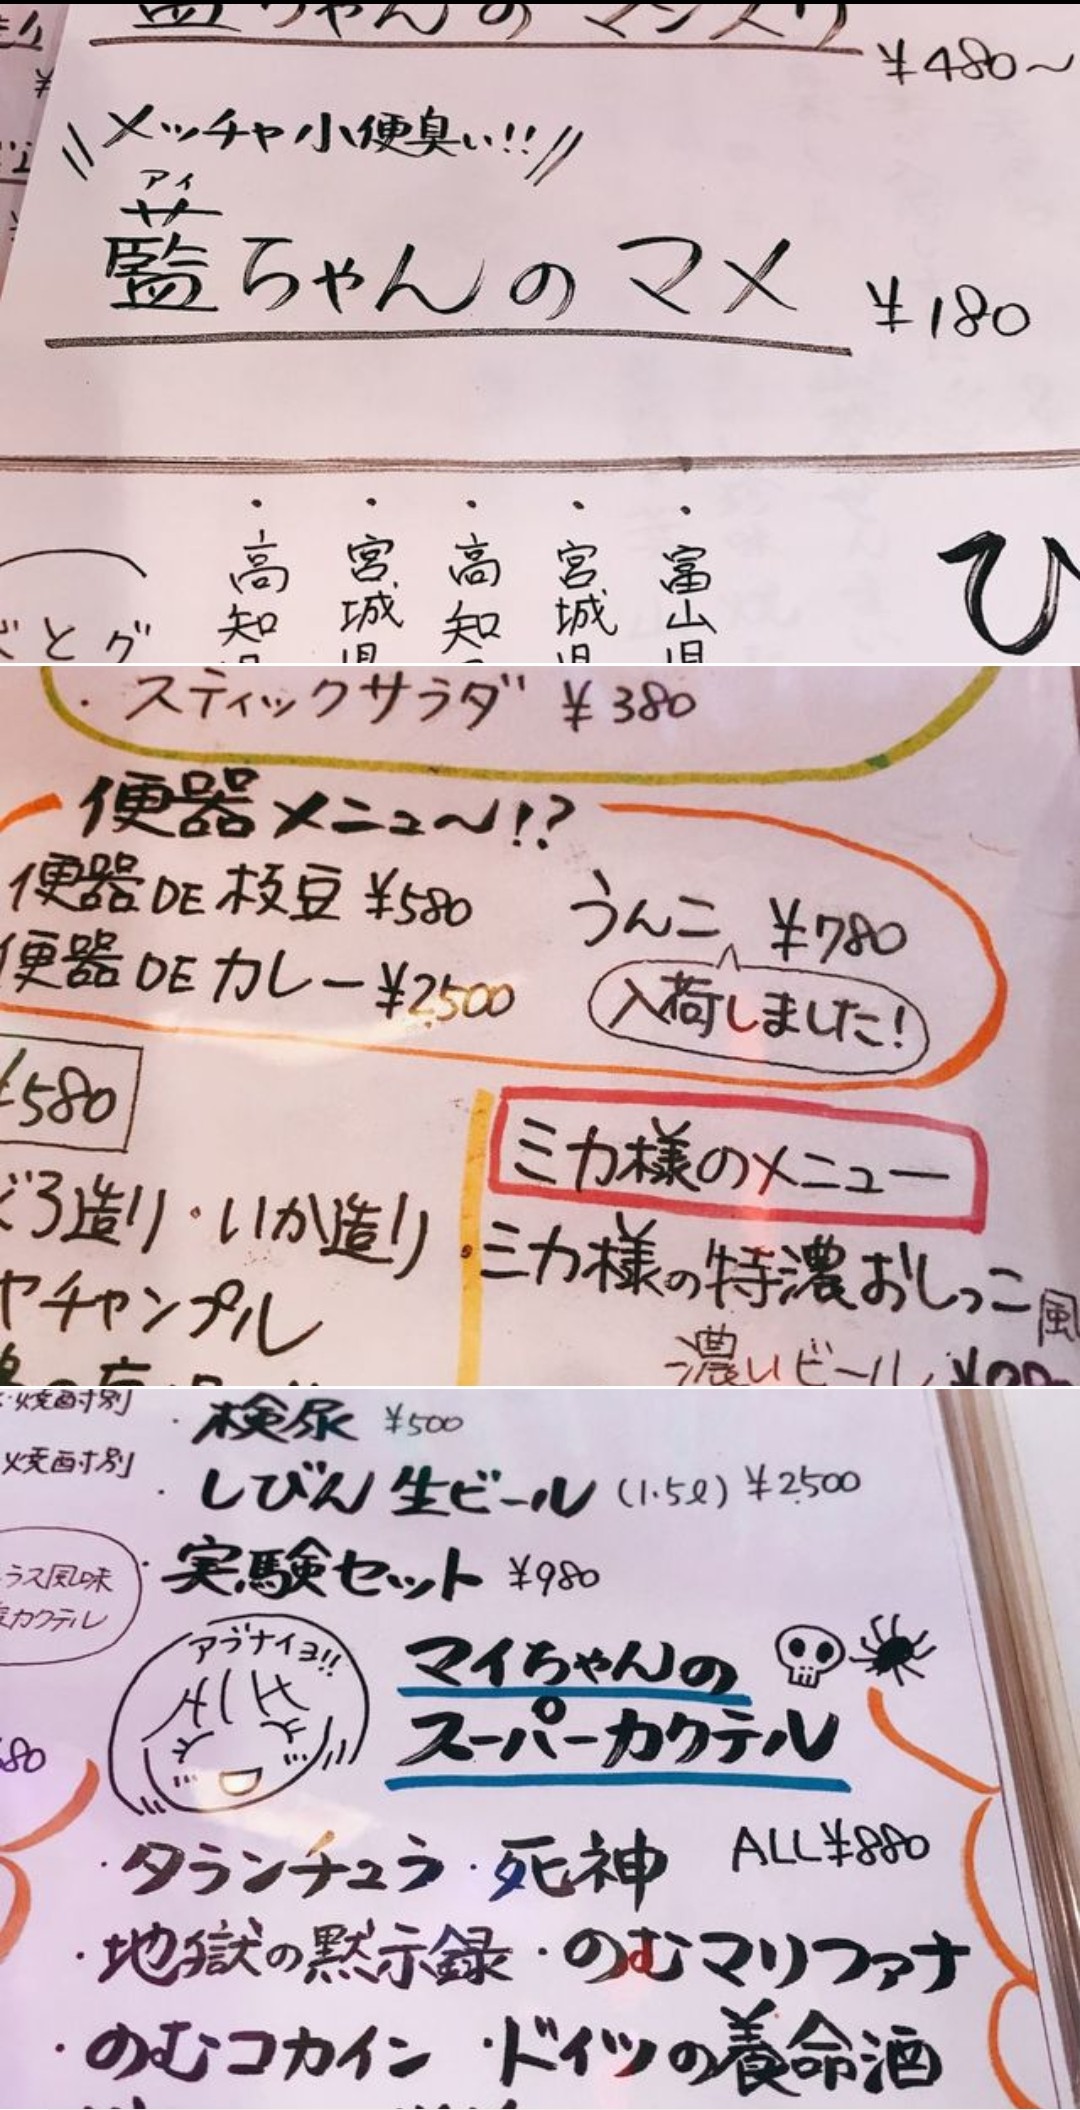 藍ちゃんのマンズリ
¥480〜
メッチャ小便臭い!!
アイ
藍ちゃんのマメ ¥180
・富山県
・宮城県
・高知
・宮城県
・高知
ひ
・スティックサラダ ¥380
便器メニュ〜!?
便器DE枝豆 ¥580
うんこ ¥780
便器DEカレー ¥2,500
入荷しました!
¥580
ミカ様のメニュー
ぐろ造り・いか造り
・ミカ様の特濃おしっこ風
ヤチャンプル
濃いビール
焼酎割
・検尿 ¥500
焼酎割
・しびん生ビール (1.5ℓ) ¥2,500
・実験セット ¥980
ラス風味
カクテル
アブナイヨ!!
マイちゃんの
スーパーカクテル
ALL¥880
・タランチュラ ・死神
・地獄の黙示録 ・のむマリファナ
・のむコカイン ・ドイツの養命酒